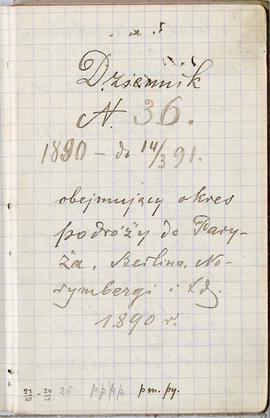 Dziennik
N. 36.
1890 – do 14/3 91.
obejmujący okres
podróży do Pary-
ża, Berlina, No-
rymbergi i t.d.
1890 r.
23/10 – 24/10 26 pppp pm. py.